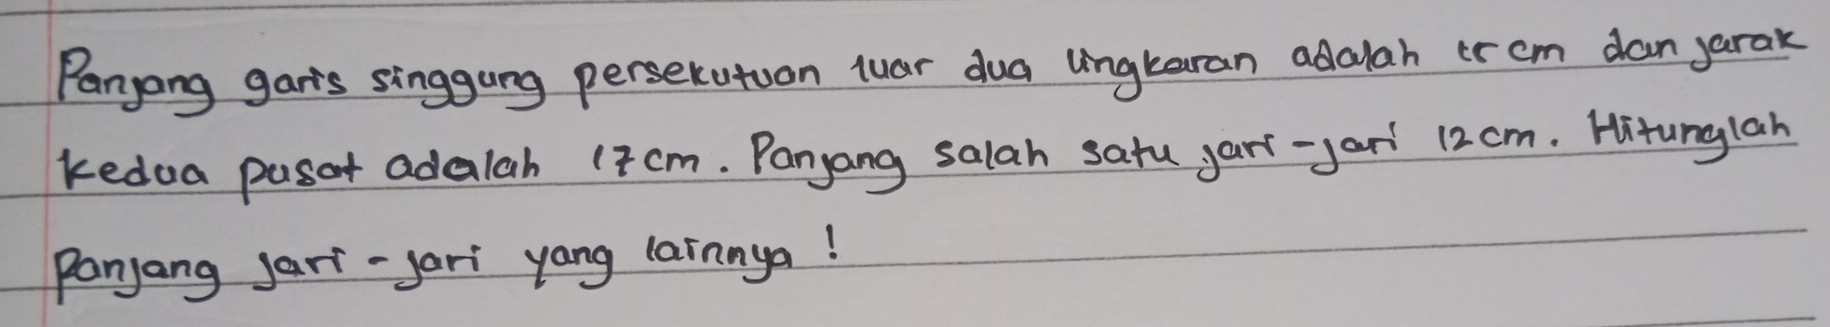 Panjang garis singgung persekutuan luar dua lingkaran adalah 15 cm dan jarak
kedua pusat adalah 17 cm. Panjang salah satu jari-jari 12 cm. Hitunglah
panjang jari-jari yang lainnya!